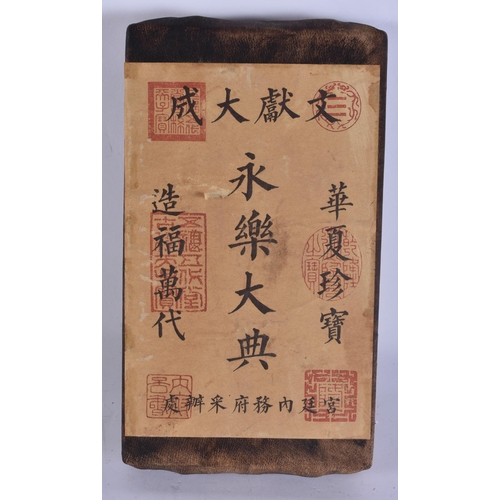 文獻大成
華夏珍寶
永樂大典
造福萬代
宮廷內務府采辦處